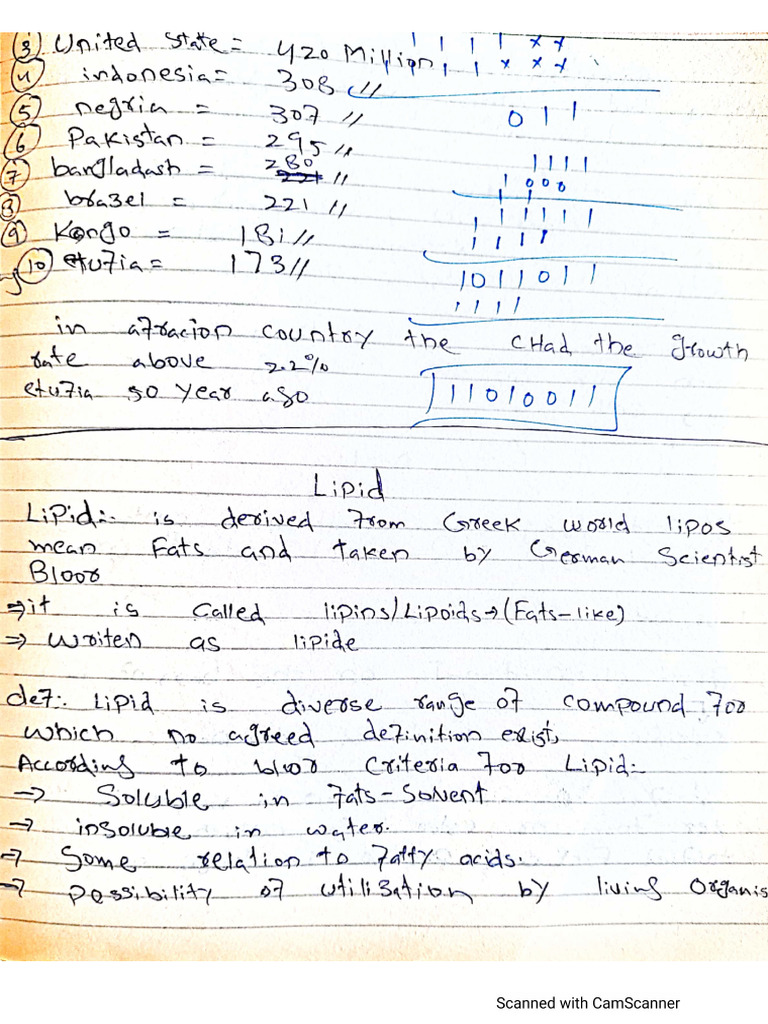 ③ United State = 420 Million
④ indonesia = 308 //
⑤ negria = 307 //
⑥ Pakistan = 295 //
⑦ bangladash = 280 //
⑧ brazel = 221 //
⑨ Kongo = 181 //
⑩ etufia = 173 //
1 1 1 1 x x
1 1 x x x
0 1 1
1 1 1 1
1 0 0 0
1 1
1 1 1 1 1 1
1 1 1 1
1011011
1111
in afracion country the CHad the growth
rate above 2.2%
etufia 50 year ago
111010011
Lipid
Lipid:- is derived from Greek world lipos
mean Fats and taken by German Scientist
Bloor
⇒ it is called lipins/Lipoids → (Fats-like)
⇒ writen as lipide
def:- Lipid is diverse range of compound for
which no agreed definition exist,
According to bloor Criteria for Lipid:-
→ Soluble in fats-Solvent
→ insoluble in water.
→ Some relation to fatty acids.
→ possibility of utilization by living organis
Scanned with CamScanner